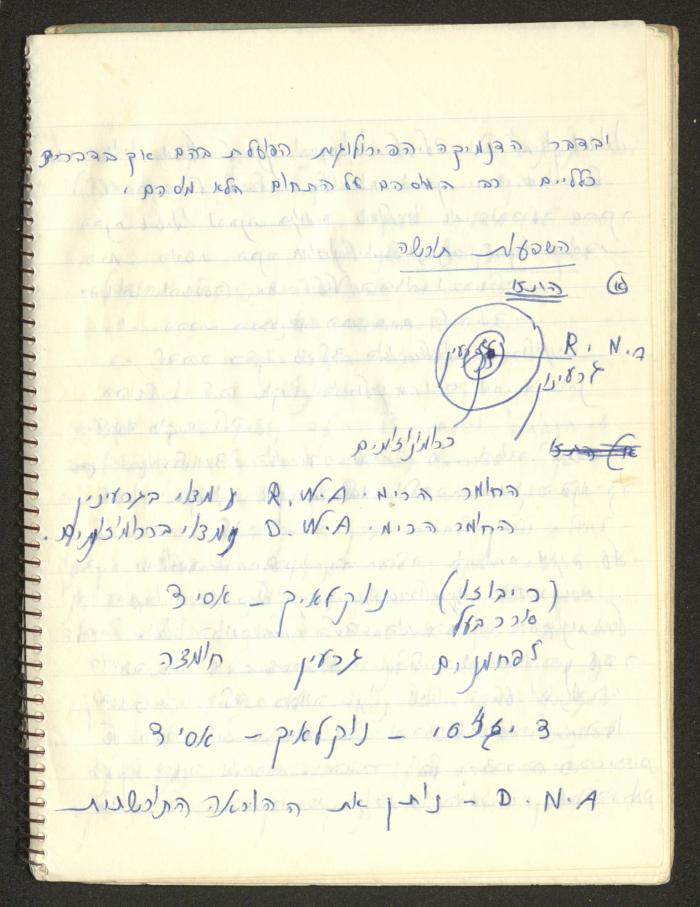 ובדבר הדנמיקה הפיזיולוגית הפועלת בהם אך בדברים
כלליים רב המוסכם על התחום הלא מוסכם
השפעת תורשה
א) התא
R. N. A
גרעינון
גרעין
כרומוזומים
החומר הכימי R.N.A נמצאי בגרעינון
החומר הכימי D.N.A נמצאי בכרומוזומים.
(ריבוזו) נוקלאיק - אסיד
סוכר בעל
לפחמנים גרעין חומצה
דיזוקסי - נוקלאיק - אסיד
D.N.A - נותן את ההוראה התורשתית